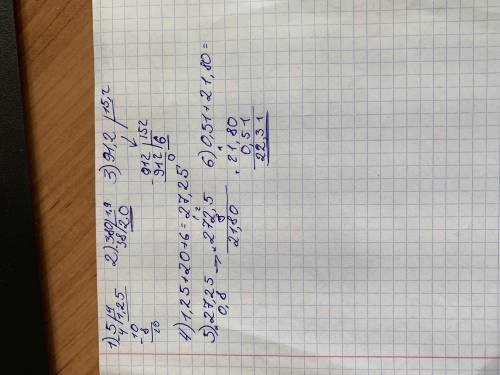 1) 5 |4
4 |1,25
10
- 8
20
2) 380 |1,9
38 |20
3) 91,2 |15,2
- 912 |152
912 |6
0
4) 1,25+20+6=27,25
5) 27,25 → 272,5
0,8
8
21,80
6) 0,51+21,80=
21,80
0,51
22,31